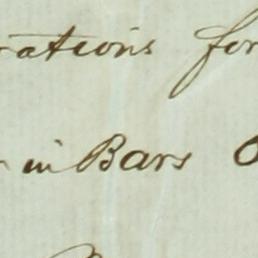 rations for
in Bars